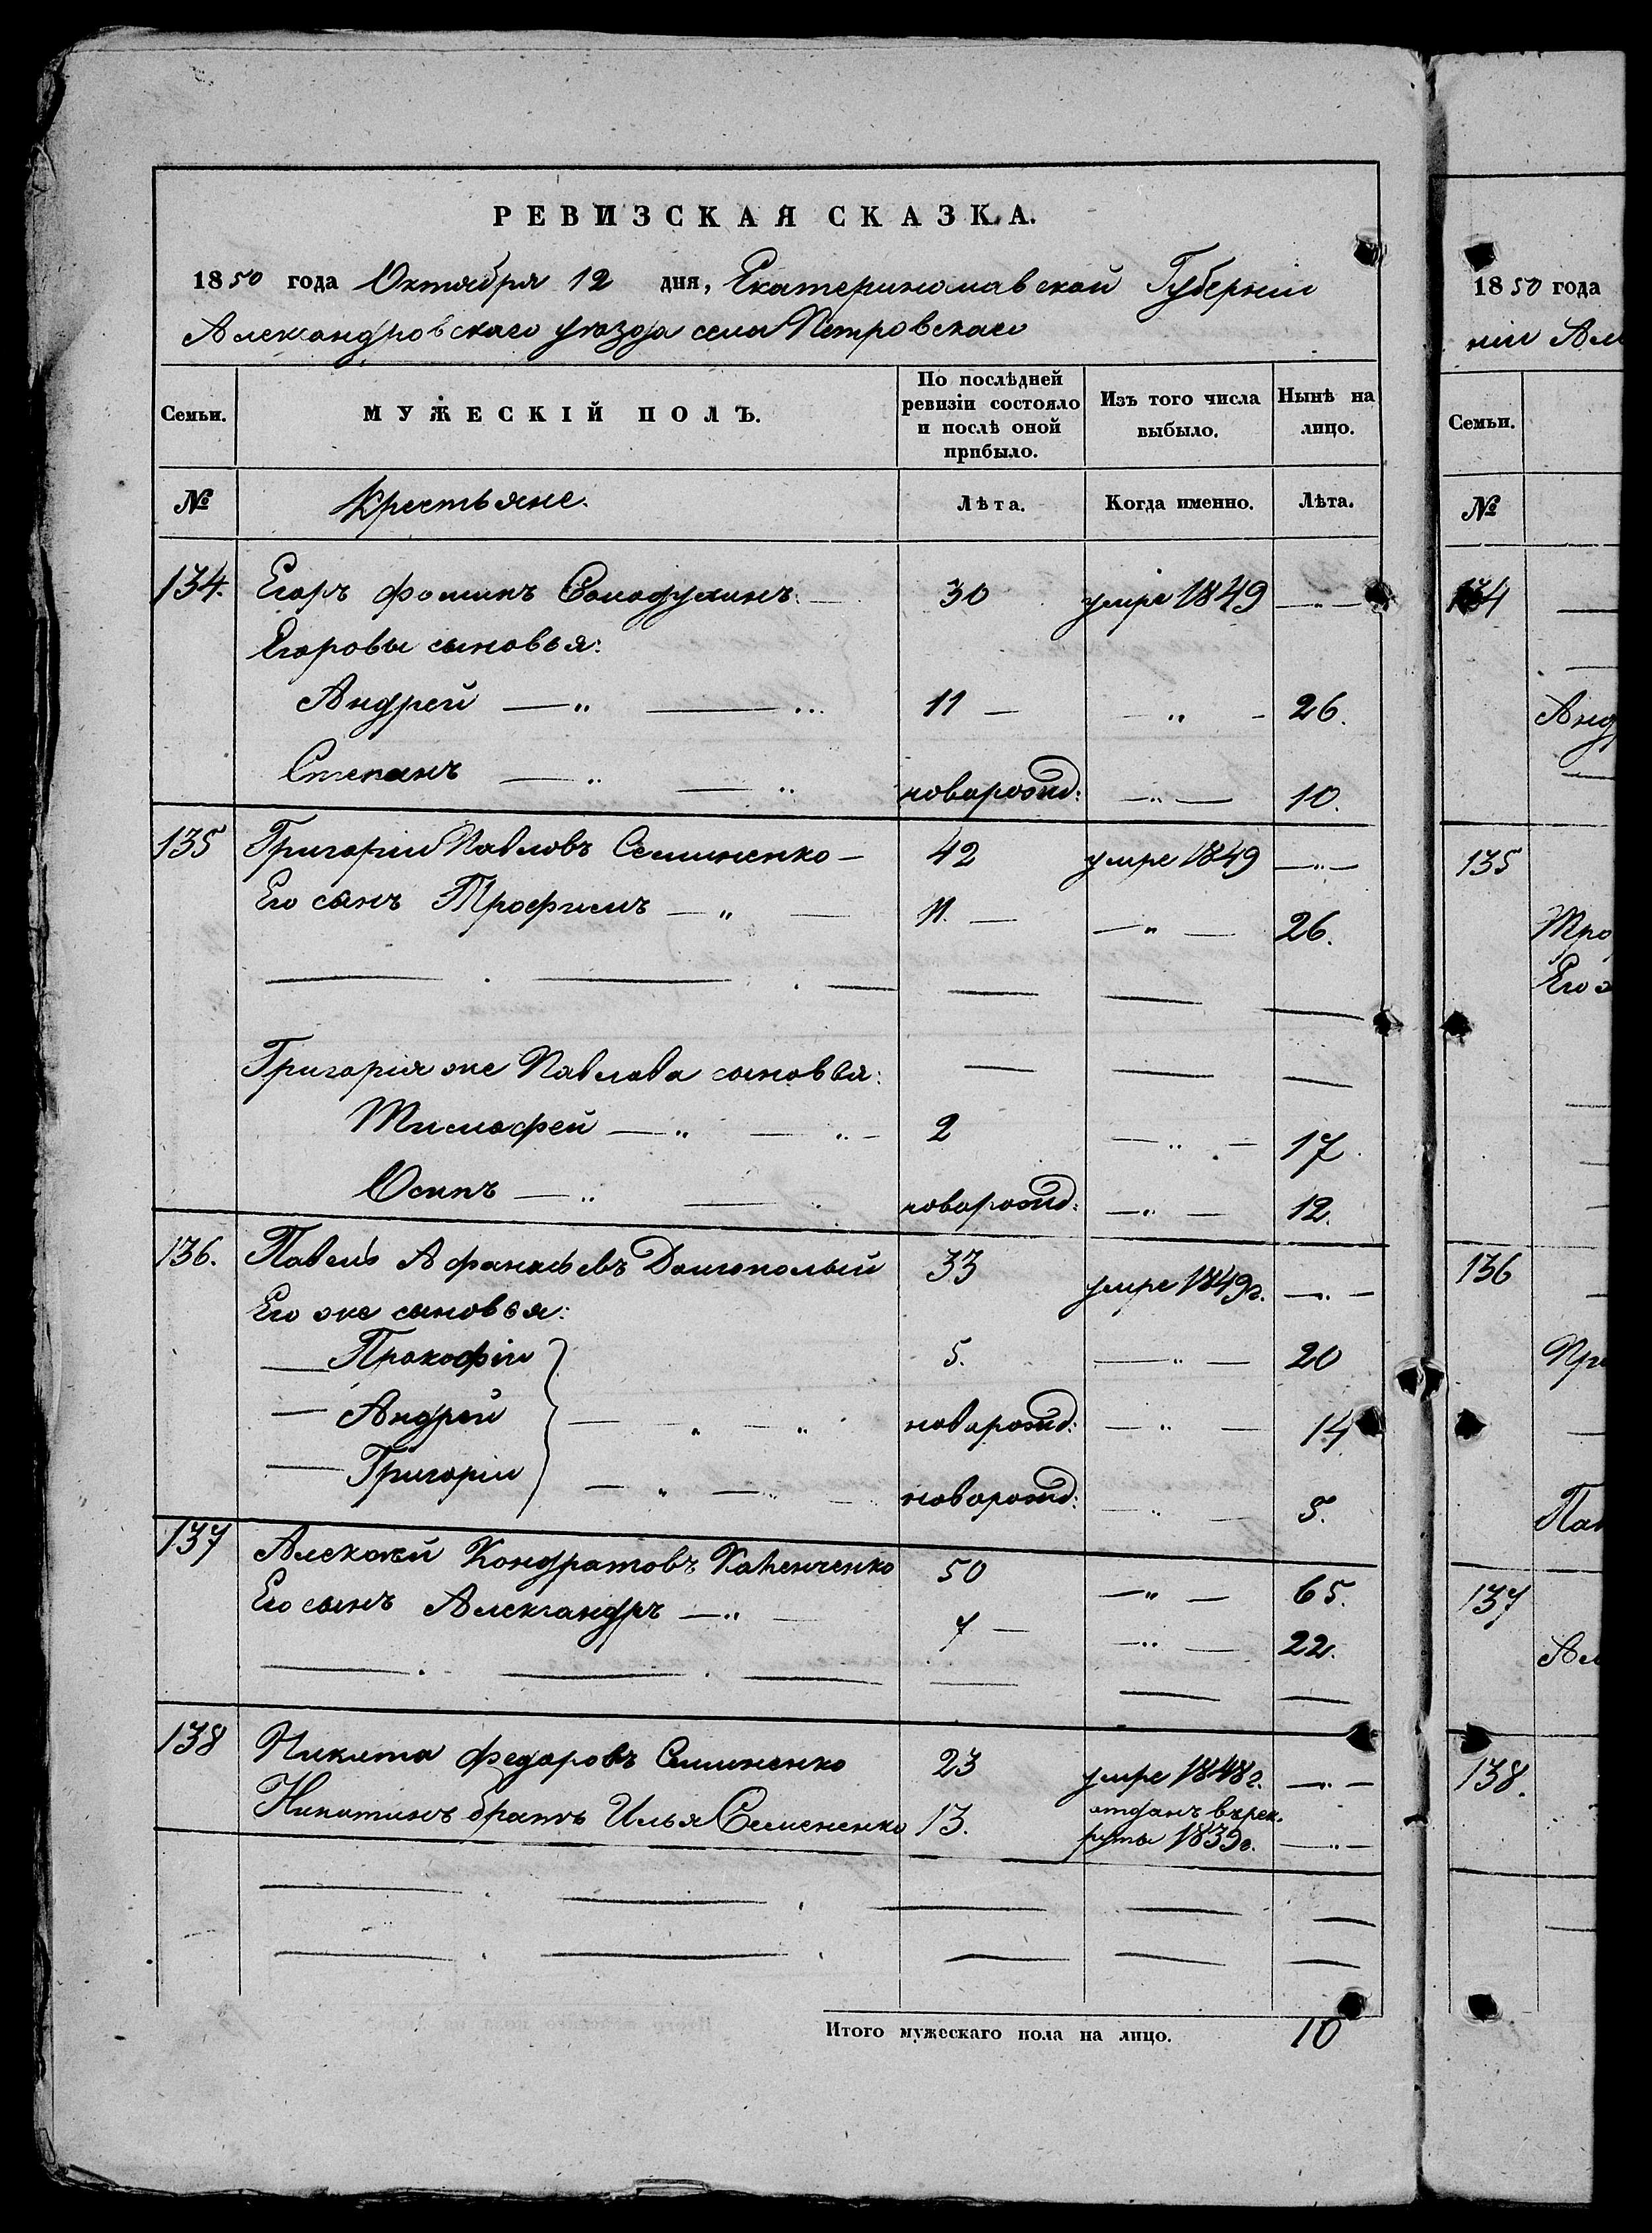 РЕВИЗСКАЯ СКАЗКА.
1850 года Октября 12 дня, Екатеринославской Губерніи
Александровскаго уѣзда села Петровскаго
Семьи. МУЖЕСКІЙ ПОЛЪ. По послѣдней ревизіи состояло и послѣ оной прибыло. Изъ того числа выбыло. Нынѣ на лицо.
№ Крестьяне. Лѣта. Когда именно. Лѣта.
134. Егоръ Фоминъ Солодухинъ 30 умре 1849 — " —
Егоровы сыновья:
Андрей — " — 11 — — " — 26.
Степанъ — " — новорожд: — " — 10.
135 Григорій Павловъ Семиненко — 42 умре 1849 — " —
Его сынъ Трофимъ — " — 11. — — " — 26.
Григорія же Павлова сыновья:
Тимофей — " — 2 — " — 17.
Осипъ — " — новорожд: — " — 12.
136. Павелъ Афанасьевъ Долгополый 33 умре 1849г. — " —
Его же сыновья:
— Прокофій 5. — " — 20
— Андрей — " — " новорожд: — " — 14
— Григорій — " — " — новорожд: — " — 5.
137 Алексѣй Кондратовъ 50 — " — 65.
Его сынъ Александръ — " — 7 — — " — 22.
138 Никита Федоровъ Семиненко 23 умре 1848г. — " —
Никитинъ братъ Илья Семененко 13. отданъ въ рек-
руты 1839г. — " —
Итого мужескаго пола на лицо. 10
1850 года
ніи Але
Семьи.
№
134
Анд
135
Тро
Его ж
136
Про
Пав
137
Але
138.